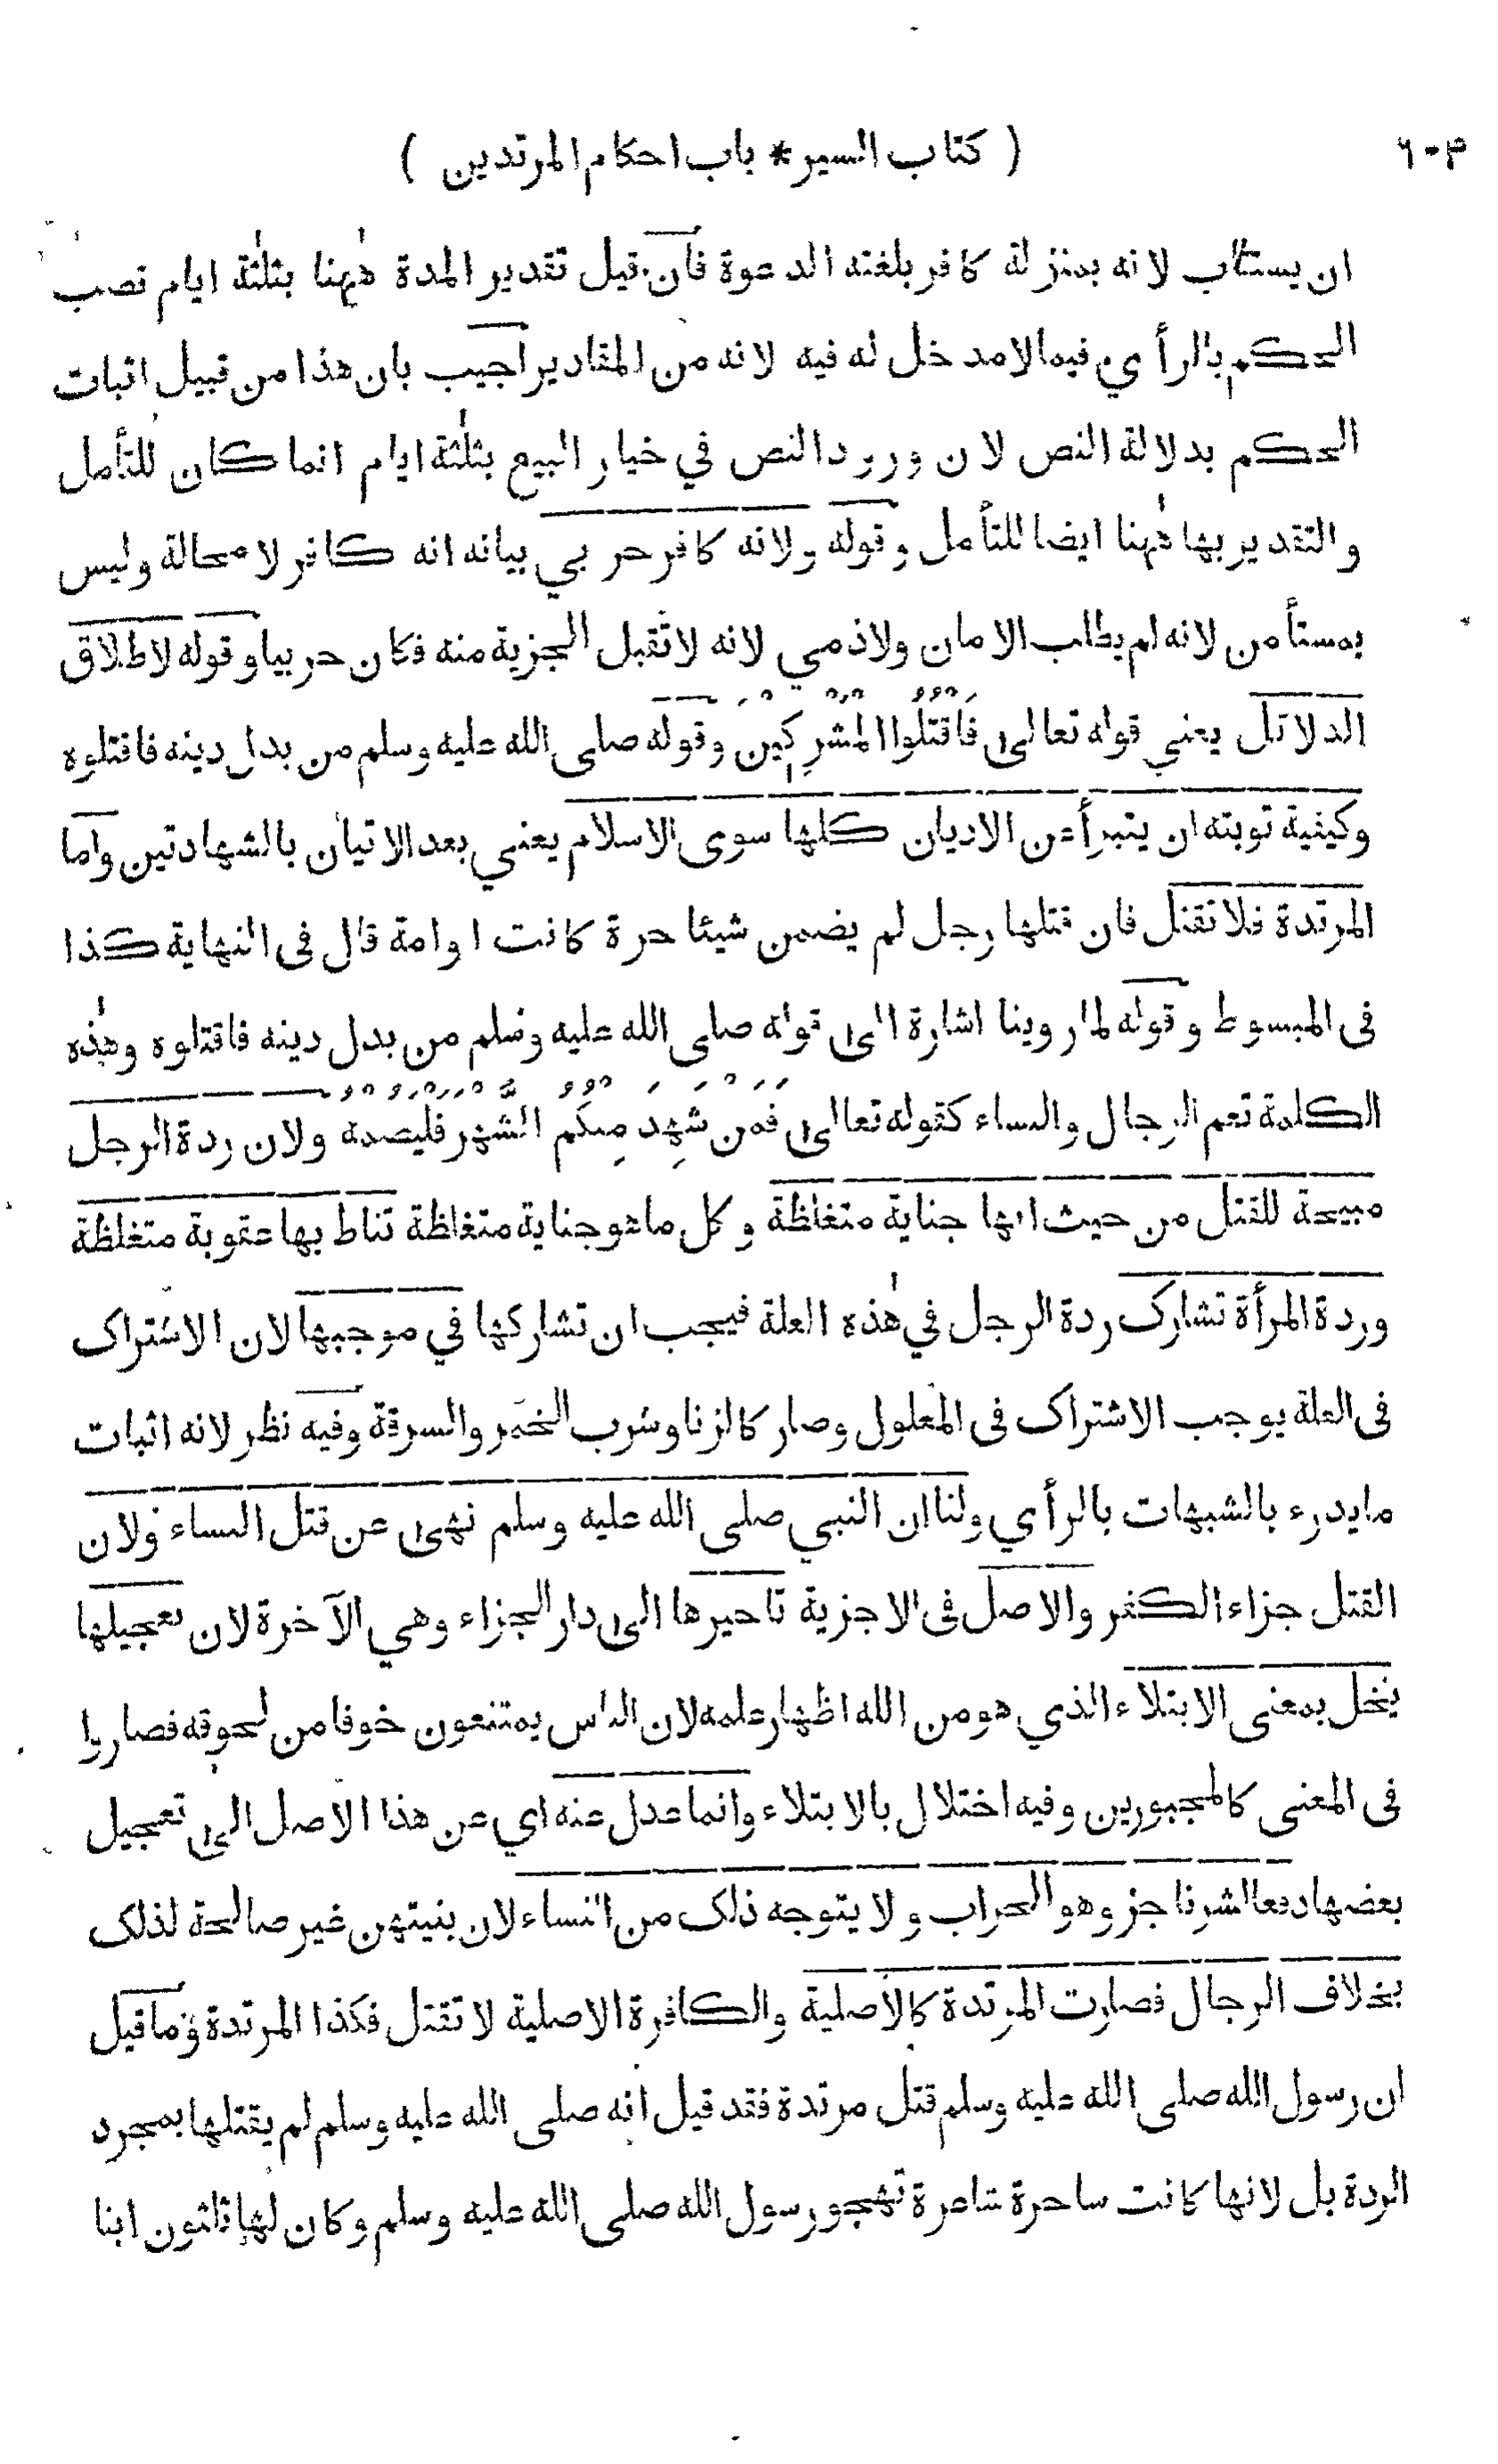 ٦٠٣ ( كتاب السير * باب احكام المرتدين )
ان يستتاب لانه بمنزلة كافر بلغته الدعوة فان قيل تقدير المدة ههنا بثلثة ايام نصب
الحكم بالرأي فيما لا مدخل له فيه لانه من المقادير اجيب بان هذا من قبيل اثبات
الحكم بدلالة النص لان ورود النص في خيار البيع بثلثة ايام انما كان للتأمل
والتقدير بها ههنا ايضا للتأمل وقوله ولانه كافر حربي بيانه انه كافر لا محالة وليس
بمستأمن لانه لم يطلب الامان ولا ذمي لانه لا تقبل الجزية منه فكان حربيا وقوله لاطلاق
الدلائل يعني قوله تعالى فَاقْتُلُوا الْمُشْرِكِيْنَ وقوله صلى الله عليه وسلم من بدل دينه فاقتلوه
وكيفية توبته ان يتبرأ عن الاديان كلها سوى الاسلام يعني بعد الاتيان بالشهادتين واما
المرتدة فلا تقتل فان قتلها رجل لم يضمن شيئا حرة كانت او امة قال في النهاية كذا
في المبسوط وقوله لما روينا اشارة الى قوله صلى الله عليه وسلم من بدل دينه فاقتلوه وهذه
الكلمة تعم الرجال والنساء كقوله تعالى فَمَنْ شَهِدَ مِنْكُمُ الشَّهْرَ فَلْيَصُمْهُ ولان ردة الرجل
مبيحة للقتل من حيث انها جناية متغلظة وكل ما هو جناية متغلظة تناط بها عقوبة متغلظة
وردة المرأة تشارك ردة الرجل في هذه العلة فيجب ان تشاركها في موجبها لان الاشتراك
في العلة يوجب الاشتراك في المعلول وصار كالزنا وشرب الخمر والسرقة وفيه نظر لانه اثبات
ما يدرء بالشبهات بالرأي ولنا ان النبي صلى الله عليه وسلم نهى عن قتل النساء ولان
القتل جزاء الكفر والاصل في الاجزية تاخيرها الى دار الجزاء وهي الآخرة لان تعجيلها
يخل بمعنى الابتلاء الذي هو من الله اظهار علمه لان الناس يمتنعون خوفا من لحوقه فصاروا
في المعنى كالمجبورين وفيه اختلال بالابتلاء وانما عدل عنه اي عن هذا الاصل الى تعجيل
بعضها دفعا لشر ناجز وهو الحراب ولا يتوجه ذلك من النساء لان بنيتهن غير صالحة لذلك
بخلاف الرجال فصارت المرتدة كالاصلية والكافرة الاصلية لا تقتل فكذا المرتدة وما قيل
ان رسول الله صلى الله عليه وسلم قتل مرتدة فقد قيل انه صلى الله عليه وسلم لم يقتلها بمجرد
الردة بل لانها كانت ساحرة شاعرة تهجو رسول الله صلى الله عليه وسلم وكان لها ثلثون ابنا